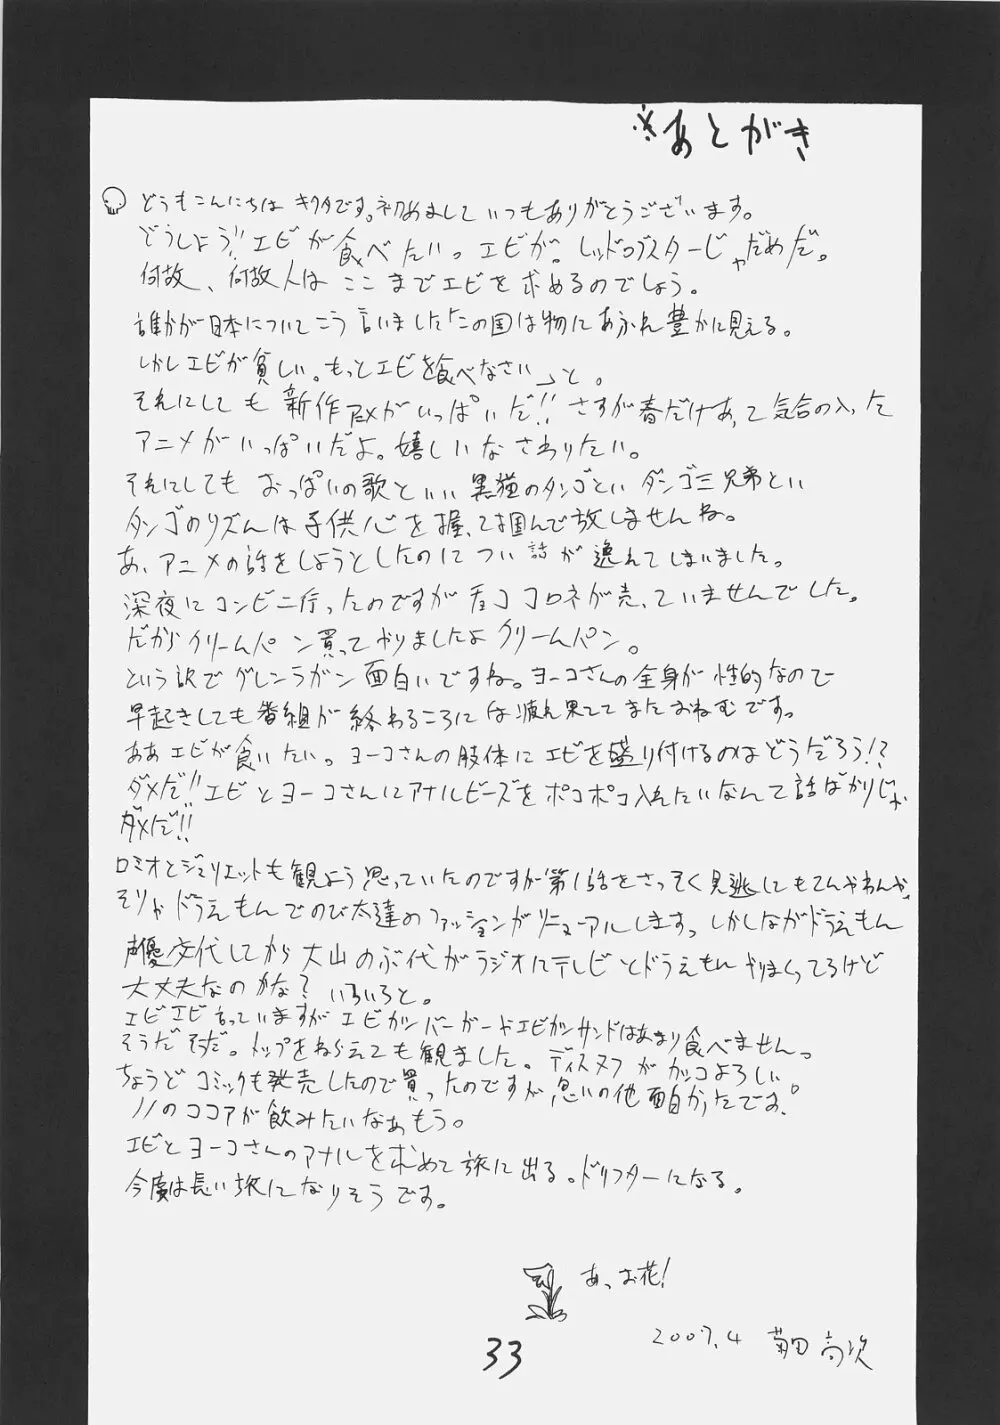 ※あとがき
どうもこんにちは キクタです。初めまして いつもありがとうございます。
どうしよう!!エビが食べたいっ エビが。レッドロブスターじゃだめだ。
何故、何故人は ここまでエビを求めるのでしょう。
誰かが日本についてこう言いました「この国は物にあふれ豊かに見える。
しかしエビが貧しい。もっとエビを食べなさい」と。
それにしても 新作アニメがいっぱいだ!! さすが春だけあって気合の入った
アニメがいっぱいだよ。嬉しいな さわりたい。
それにしても おっぱいの歌といい 黒猫のタンゴといい ダンゴ三兄弟とい
タンゴのリズムは子供心を握って掴んで放しませんね。
あ、アニメの話をしようとしたのに つい話が逸れてしまいました。
深夜にコンビニ行ったのですがチョココロネが売っていませんでした。
だからクリームパン買ってやりましたよクリームパン。
という訳でグレンラガン面白いですね。ヨーコさんの全身が性的なので
早起きしても番組が終わるころには疲れ果ててまたおねむです。
ああエビが食いたい。ヨーコさんの肢体にエビを盛り付けるのはどうだろう!?
ダメだ!!エビとヨーコさんにアナルビーズをポコポコ入れたいなんて話ばかりじゃ
ダメだ!!
ロミオとジュリエットも観よう思っていたのですが第1話をさっそく見逃してもてんやわんや
そりゃドラえもんでのび太達のファッションがリニューアルしますっ しかしながらドラえもん
声優交代してから大山のぶ代がラジオにテレビとドラえもんやりまくってるけど
大丈夫なのかな? いろいろと。
エビエビ言っていますがエビカツバーガーやエビカツサンドはあまり食べませんっ
そうだそうだ。トップをねらえても観ました。ディスヌフがカッコよろしい
ちょうどコミックも発売したので買ったのですが思いの他面白かったです。
ノノのココアが飲みたいなぁもう。
エビとヨーコさんのアナルを求めて旅に出る。ドリフターになる。
今度は長い旅になりそうです。
あっお花!
2007.4 菊田高次
33